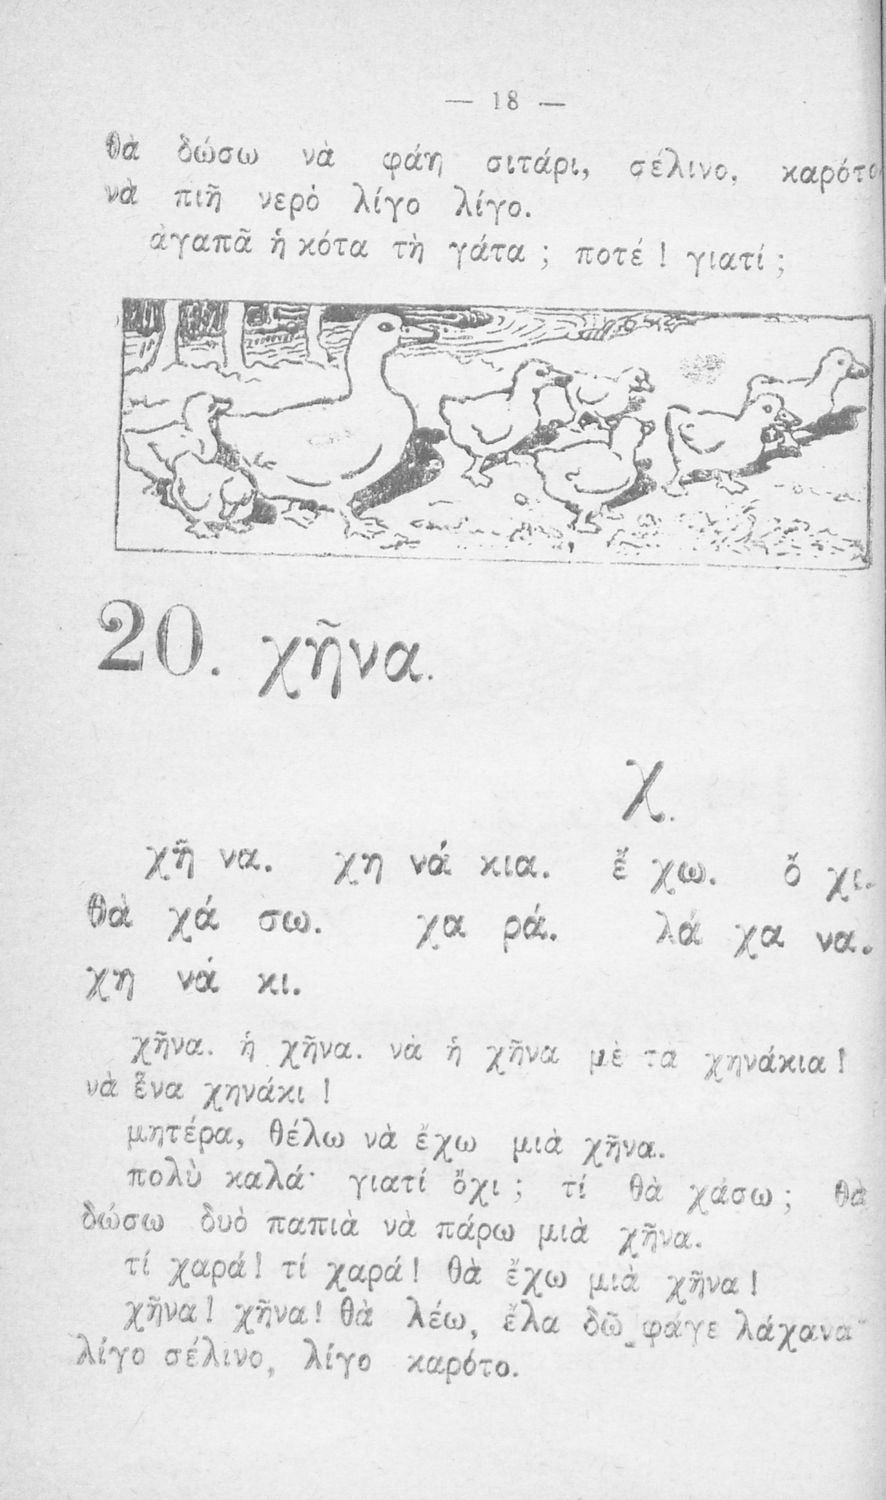 — 18 —
θὰ δώσω νὰ φάῃ σιτάρι, σέλινο, καρότο
νὰ πιῆ νερὸ λίγο λίγο.
ἀγαπᾶ ἡ κότα τὴ γάτα ; ποτέ ! γιατί ;
20. χῆνα.
χ.
χῆ να. χη νά κια. ἔ χω. ὄ χι.
θὰ χά σω. χα ρά. λά χα να.
χη νά κι.
χῆνα. ἡ χῆνα. νὰ ἡ χῆνα μὲ τὰ χηνάκια !
νὰ ἕνα χηνάκι !
μητέρα, θέλω νὰ ἔχω μιὰ χῆνα.
πολὺ καλά· γιατί ὄχι ; τί θὰ χάσω ; θὰ
δώσω δυὸ παπιὰ νὰ πάρω μιὰ χῆνα.
τί χαρά! τί χαρά! θὰ ἔχω μιὰ χῆνα !
χῆνα! χῆνα! θὰ λέω, ἔλα δῶ φάγε λάχανα
λίγο σέλινο, λίγο καρότο.